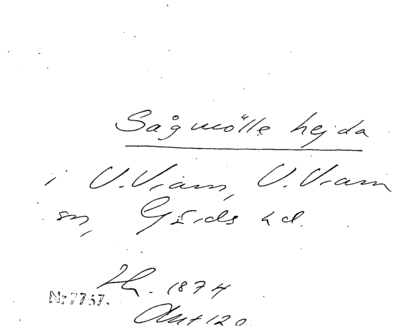 Sågmölle hejda
i V. Vram, V. Vram
sn, Gärds hd.
1874
Nr 7737.
Ant 120